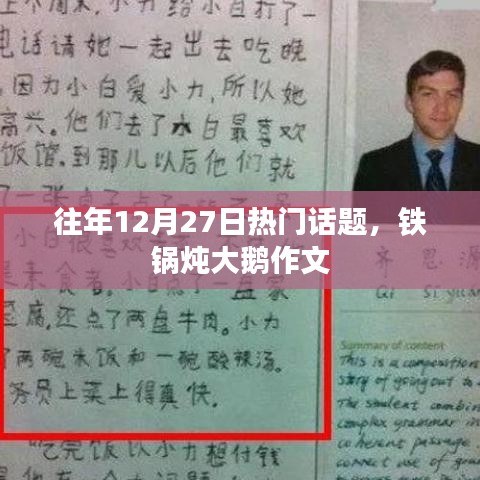 上个周末，小力给小白打了一
电话请她一起出去吃晚
因为小白爱小力，所以她
高兴。他们去了小白最喜欢
饭馆。到那儿以后他们就
往年12月27日热门话题，铁
锅炖大鹅作文
素食者。小白点了一盘家
豆腐，还点了两盘牛肉。小力
了两碗米饭和一碗酸辣汤。
务员上菜上得真快。
吃完饭以小力想付钱
齐思源
Qi Si yuan
Summary of content
This is a composition
story of going out to
The student combin
complex grammar in
coherent passage.
correct use of gra